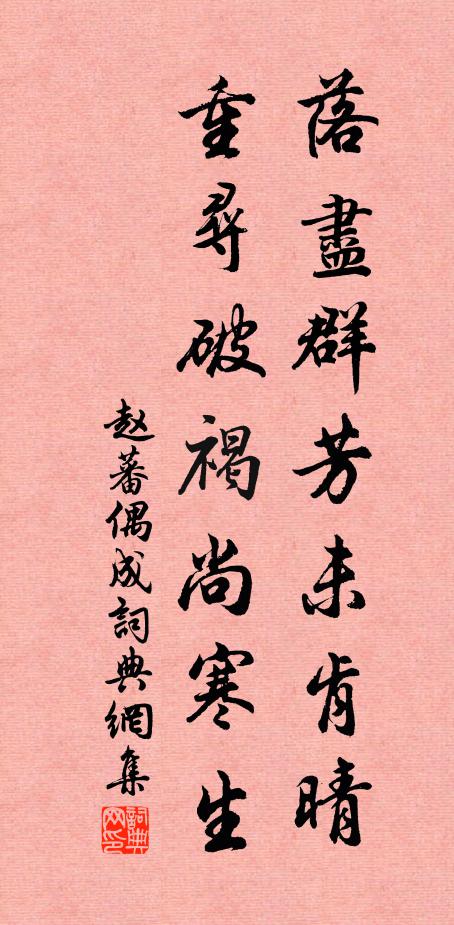 落盡群芳未肯晴
重尋破褐尚寒生
赵蕃偶成詞典網集
詞典网印